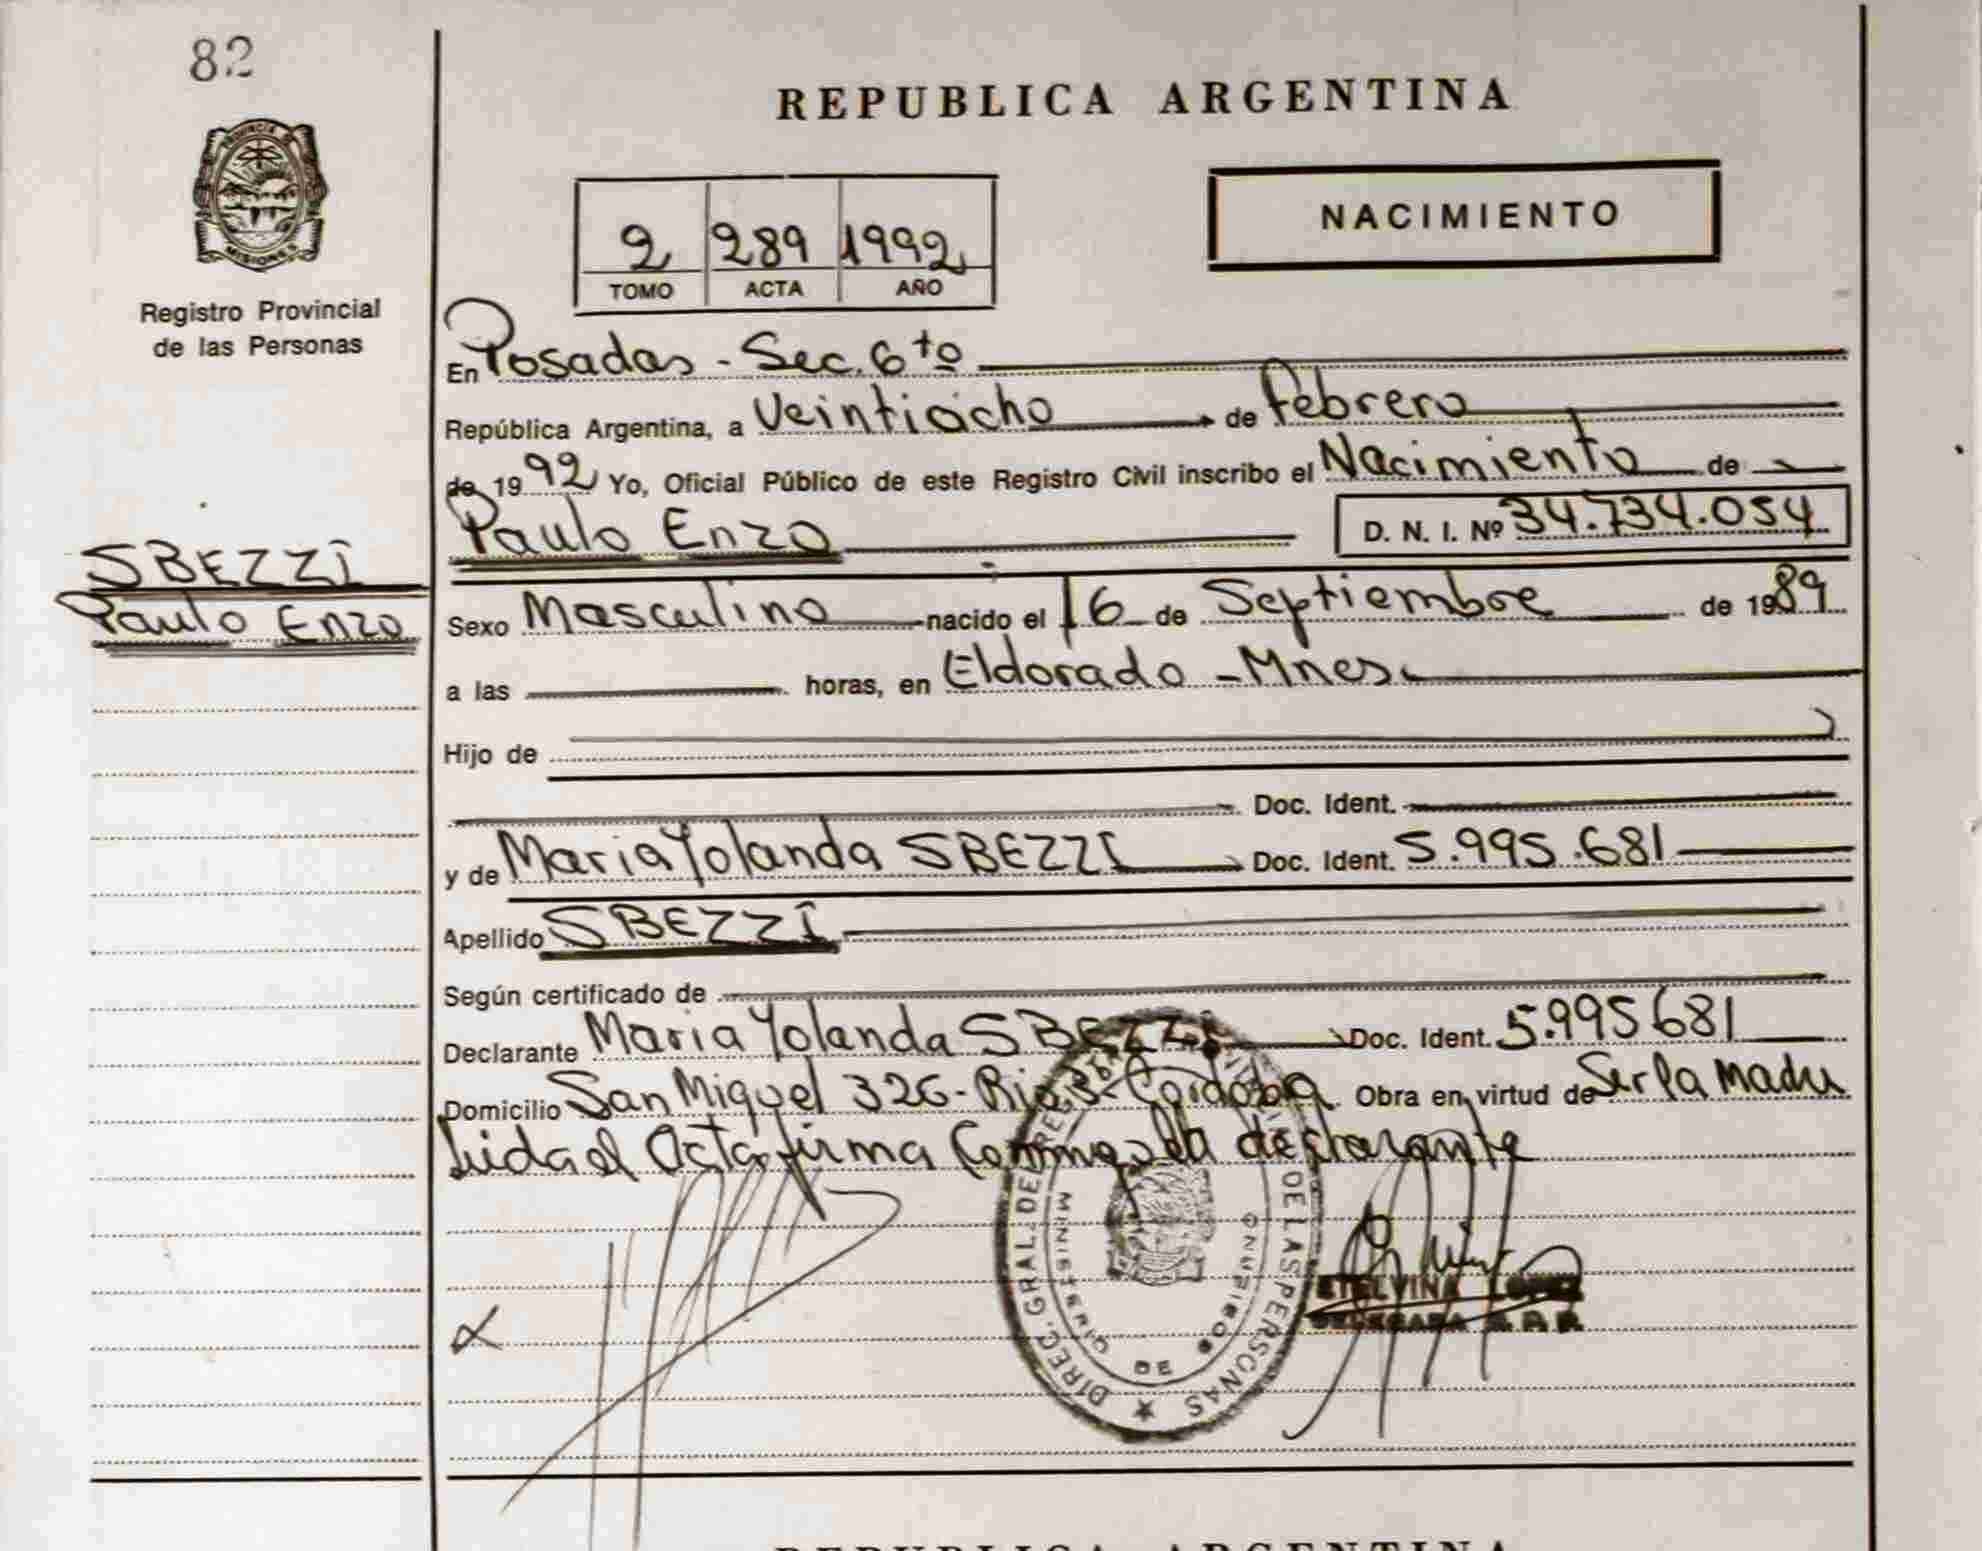 82
PROVINCIA DE
MISIONES
Registro Provincial
de las Personas
SBEZZI
Paulo Enzo
REPUBLICA ARGENTINA
NACIMIENTO
2 289 1992
TOMO ACTA AÑO
En Posadas - Sec. 6to
República Argentina, a Veintiocho de febrero
de 1992 Yo, Oficial Público de este Registro Civil inscribo el Nacimiento de
Paulo Enzo D. N. I. Nº 34.734.054
Sexo Masculino nacido el 16 de Septiembre de 1989
a las horas, en Eldorado - Mnes.
Hijo de
Doc. Ident.
y de Maria Yolanda SBEZZI Doc. Ident. 5.995.681
Apellido SBEZZI
Según certificado de
Declarante Maria Yolanda SBEZZI Doc. Ident. 5.995681
Domicilio San Miguel 326 - Rio 3º Cordoba Obra en virtud de Ser la Madre
Leida el Acta firma Conmigo la declarante
DIREC. GRAL. DE DE LAS PERSONAS
MINIS DE GOBIERNO
ETELVINA LOPEZ
REPUBLICA ARGENTINA